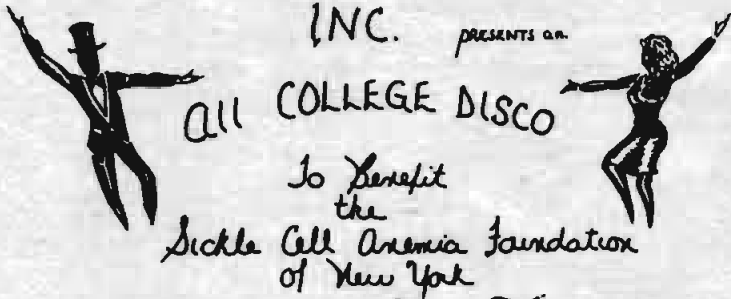 INC. PRESENTS an
all COLLEGE DISCO
To Benefit
the
Sickle Cell Anemia Foundation
of New York